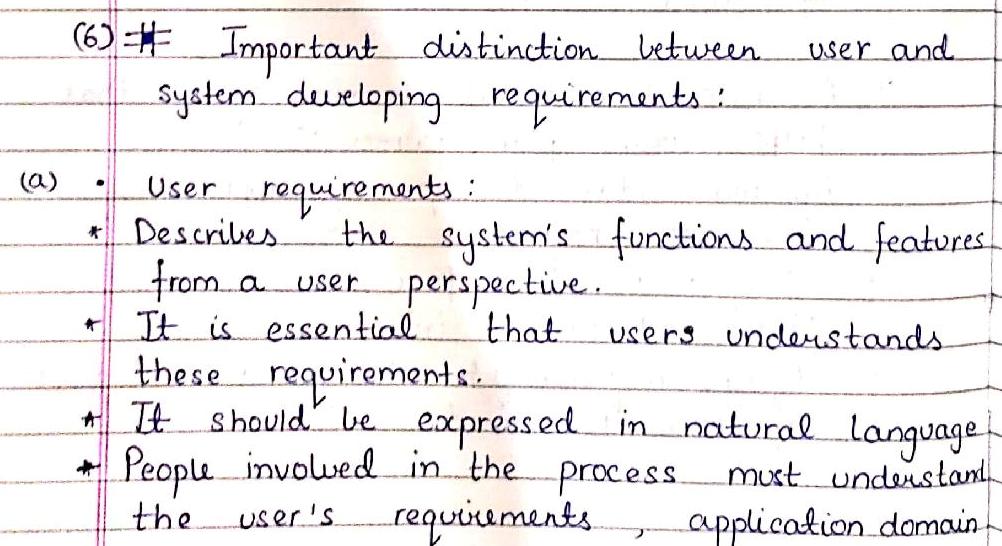 (6) # Important distinction between user and
system developing requirements :
(a) • User requirements :
* Describes the system's functions and features
from a user perspective.
* It is essential that users understands
these requirements.
* It should be expressed in natural language
* People involved in the process must understand
the user's requirements , application domain